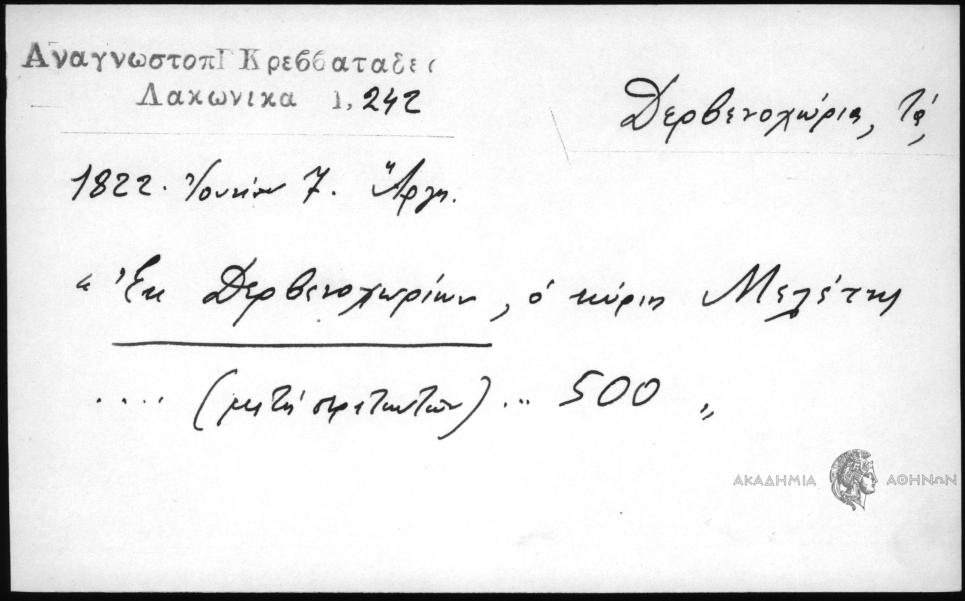 ΑναγνωστοπΓ Κρεββαταδες
Λακωνικα 1, 242
Δερβενοχώρια, Τά,
1822. Ἰουνίου 7. Ἄργος.
« Ἐκ Δερβενοχωρίων, ὁ κύριος Μελέτης
.... (μετά στρατιωτῶν) ... 500 »
ΑΚΑΔΗΜΙΑ ΑΘΗΝΩΝ